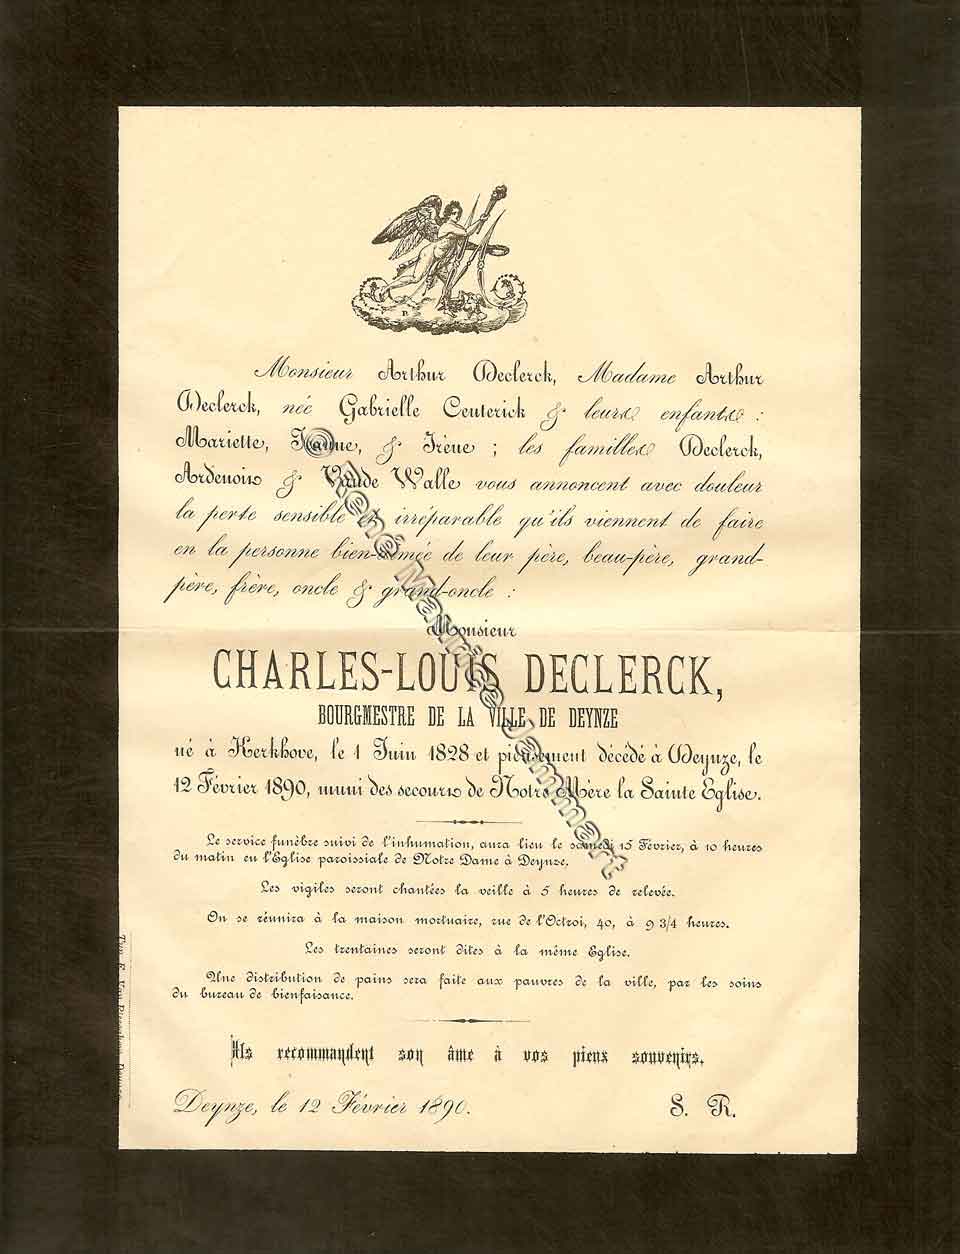 Monsieur Arthur Declerck, Madame Arthur
Declerck, née Gabrielle Centerick & leurs enfants :
Mariette, Jeanne, & Irène ; les familles Declerck,
Ardenois & Vande Walle vous annoncent avec douleur
la perte sensible & irréparable qu'ils viennent de faire
en la personne bien-aimée de leur père, beau-père, grand-
père, frère, oncle & grand-oncle :
Monsieur
CHARLES-LOUIS DECLERCK,
BOURGMESTRE DE LA VILLE DE DEYNZE
né à Kerkhove, le 1 Juin 1828 et pieusement décédé à Deynze, le
12 Février 1890, muni des secours de Notre Mère la Sainte Eglise.
Le service funèbre suivi de l'inhumation, aura lieu le samedi 15 Février, à 10 heures
du matin en l'Eglise paroissiale de Notre Dame à Deynze.
Les vigiles seront chantées la veille à 5 heures de relevée.
On se réunira à la maison mortuaire, rue de l'Octroi, 40, à 9 3/4 heures.
Les trentaines seront dites à la même Eglise.
Une distribution de pains sera faite aux pauvres de la ville, par les soins
du bureau de bienfaisance.
Ils recommandent son âme à vos pieux souvenirs.
Deynze, le 12 Février 1890.
S. R.
© René Maurice Jammart